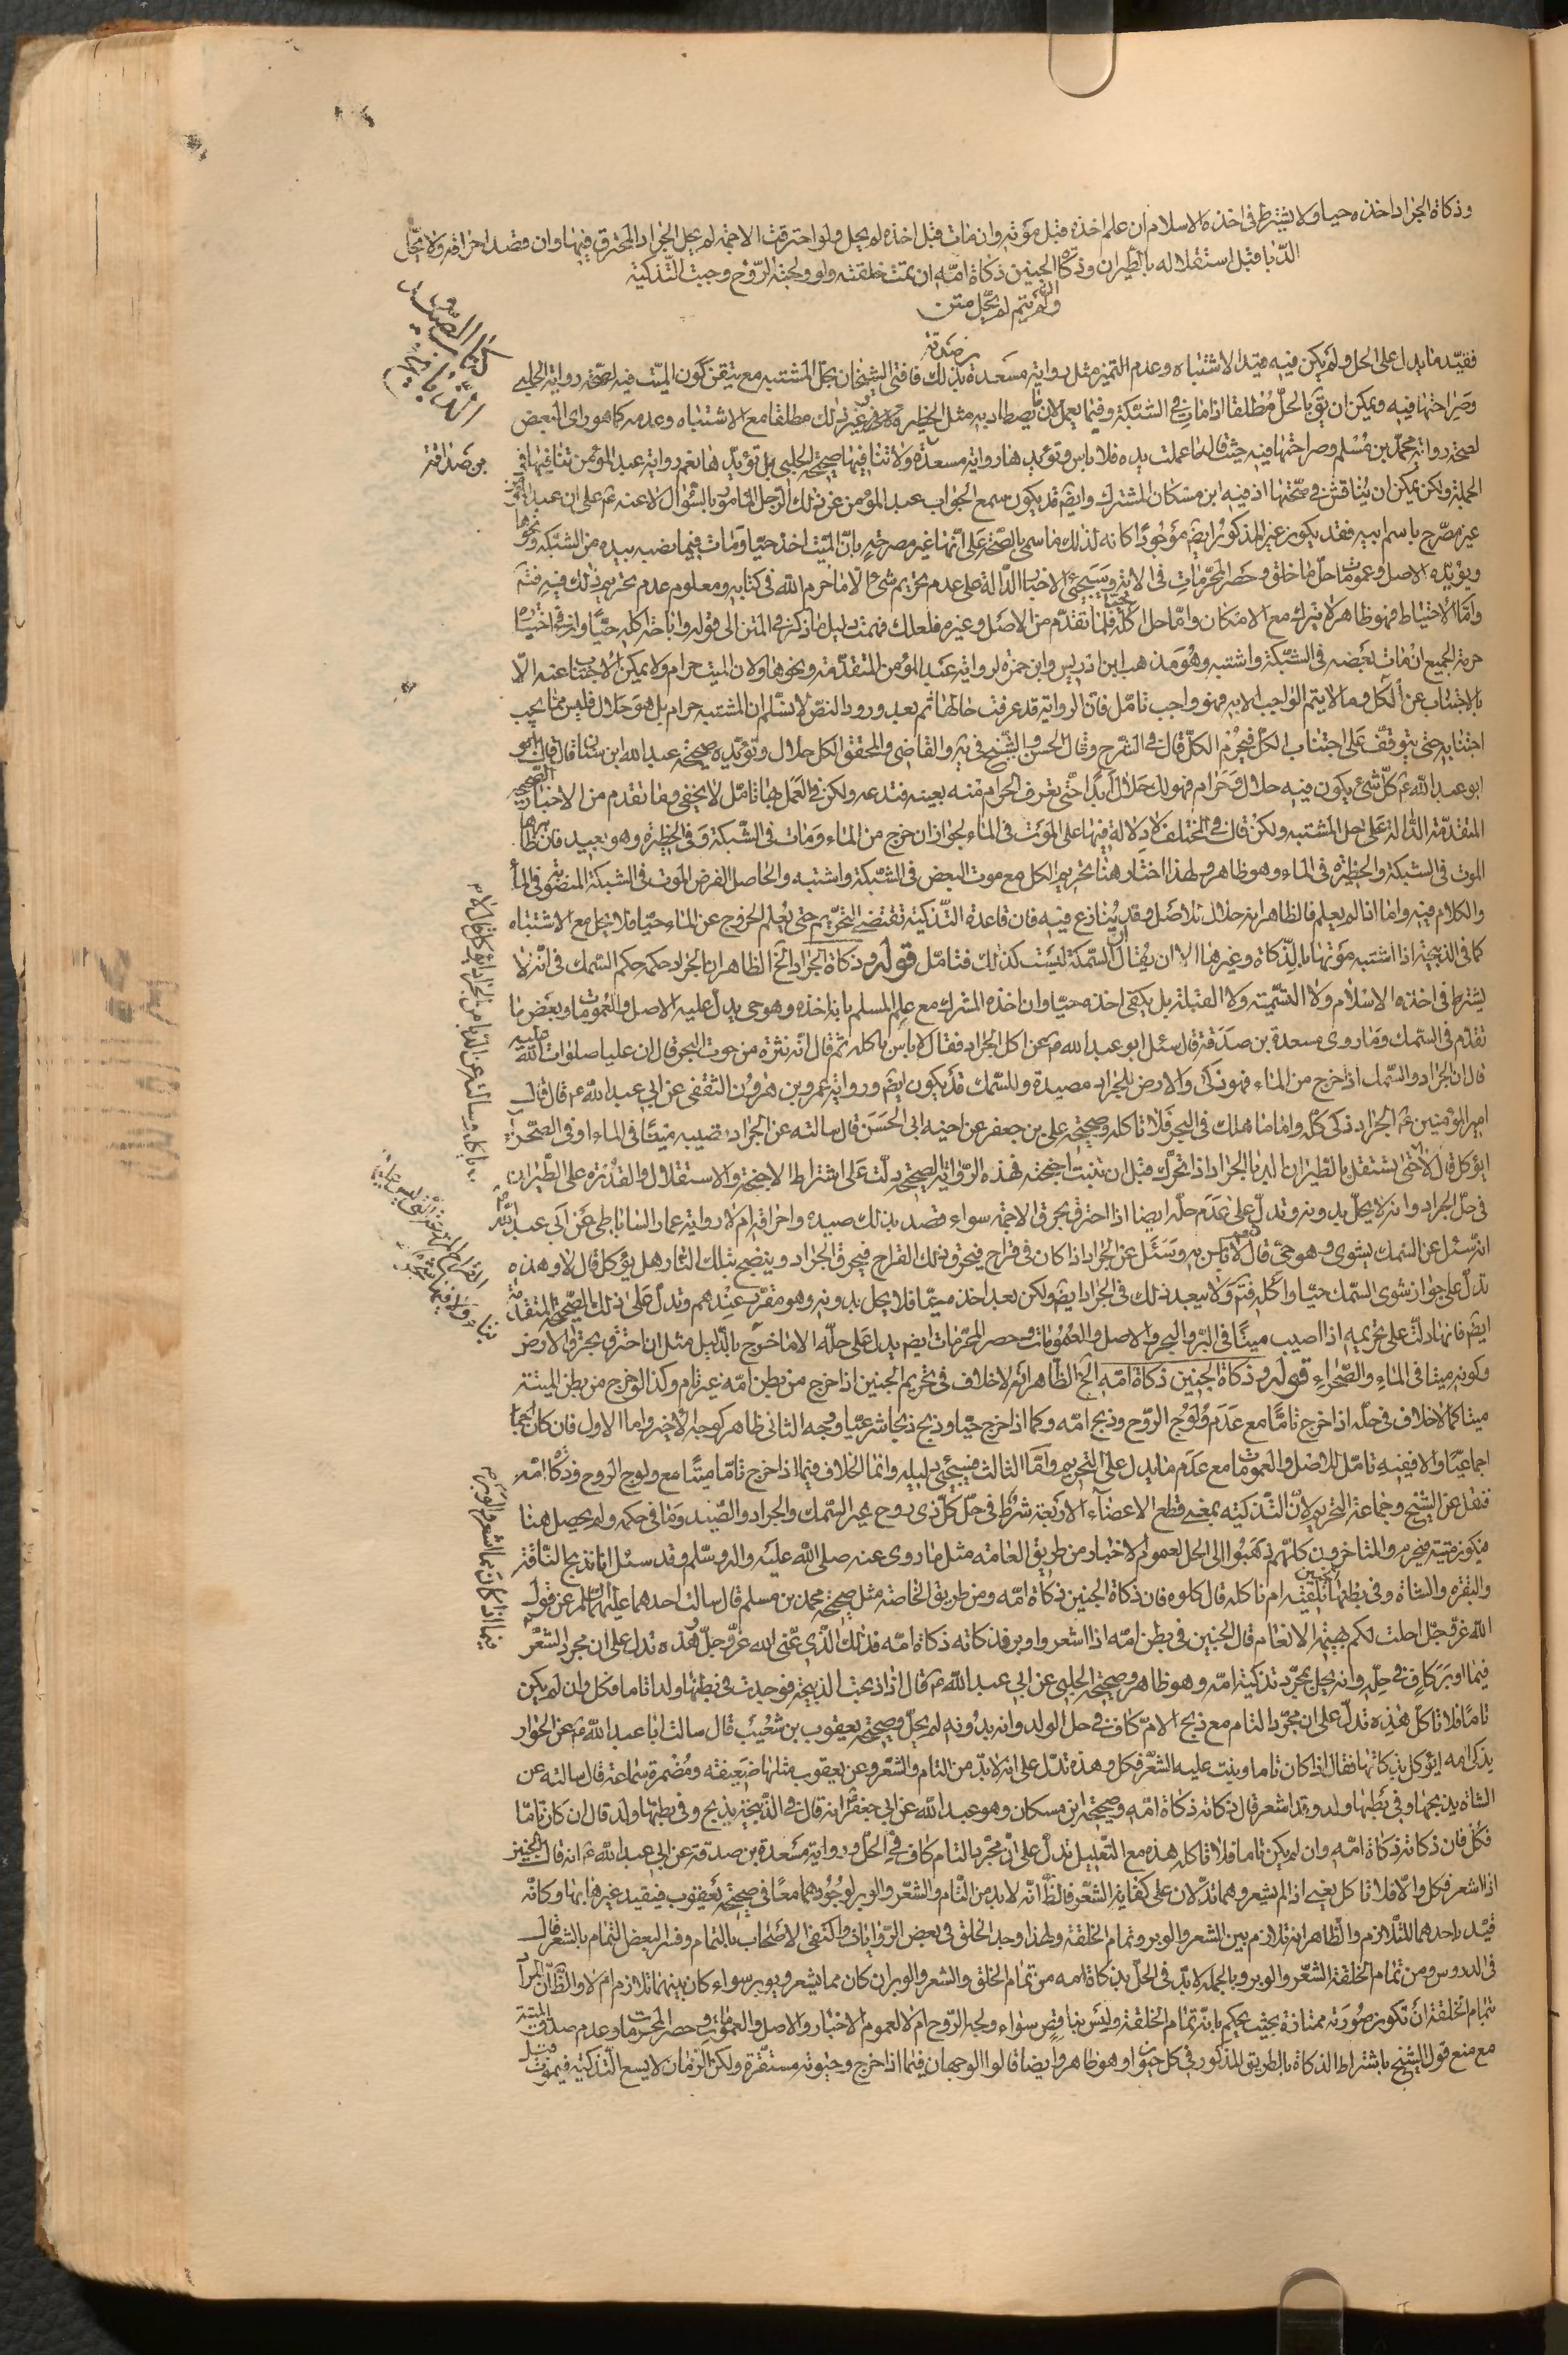 وذكاة الجراد اخذه حيا ولا يشترط فى اخذه الاسلام ان علم اخذه قبل موته وان مات قبل اخذه لم يحل ولو احترقت الاجمة لم يحل الجراد المحترق فيها وان قصد احراقه ولا يحل
الدبا قبل استقلاله بالطيران وذكاة الجنين ذكاة امه ان تمت خلقته ولو ولجته الروح وجبت التذكية
ولو لم يتم لم يحل متن
كتاب الصيد و
الذباحة
فقيد ما يدل على الحل ولم يكن فيه قيد الاشتباه وعدم التميز مثل رواية مسعدة بن صدقة بذلك فافتى الشيخان بحل المشتبه مع تيقن كون الميت فيه لصحة رواية الحلبى
وصراحتها فيه ويمكن ان يق بالحل مطلقا اذا مات فى الشبكة وفيما يعمل لان يصطاد به مثل الحظيرة وغير ذلك مطلقا مع الاشتباه وعدمه كما هو راى البعض
لصحة رواية محمد بن مسلم وصراحتها فيه حيث قال ما عملت يده فلا باس وتؤيدها رواية مسعدة ولا تنافيها صحيحة الحلبى بل تؤيدها نعم رواية عبد المؤمن تنافيها فى
الجملة ولكن يمكن ان يناقش فى صحتها اذ فيه ابن مسكان المشترك وايضا قد يكون سمع الجواب عبد المؤمن عن ذلك الرجل المامور بالسؤال لا عنه ع على ان عبد المؤمن
غير مصرح باسم ابيه فقد يكون غير المذكور ايضا موجودا كانه لذلك ما سمى بالصحة على انها غير مصرحة بان الميت اخذ حيا ومات فيما يضبه بيده من الشبكة ونحوها
ويؤيده الاصل وعمومات حل ما خلق وحصر المحرمات فى الاية وسيجئ الاخبار الدالة على عدم تحريم شئ الا ما حرم الله فى كتابه ومعلوم عدم تحريم ذلك فيه فتم
واما الاحتياط فهو ظاهر لا يترك مع الامكان واما حل اكله حيا فلما تقدم من الاصل وغيره فلعلك فهمت دليل ما ذكر فى المتن الى قوله واباحة اكله حيا وانه اختيار
حرمة الجميع ان مات بعضه فى الشبكة واشتبه وهو مذهب ابن ادريس وابن حمزة لرواية عبد المؤمن المتقدمة ونحوها ولان الميت حرام ولا يمكن الاجتناب عنه الا
بالاجتناب عن الكل وما لا يتم الواجب الا به فهو واجب تامل فان الرواية قد عرفت حالها ثم بعد ورود النص لا نسلم ان المشتبه حرام بل هو حلال فليس مما يجب
اجتنابه حتى يتوقف على اجتناب الكل فيحرم الكل قال فى الشرح وقال الحسن والشيخ فى يه والقاضى والمحقق الكل حلال وتؤيده صحيحة عبد الله ابن سنان قال قال
ابو عبد الله ع كل شئ يكون فيه حلال وحرام فهو لك حلال ابدا حتى تعرف الحرام منه بعينه فتدعه ولكن فى العمل بها تامل لا يخفى وما تقدم من الاخبار الصحيحة
المتقدمة الدالة على حل المشتبه ولكن قال فى المختلف لا دلالة فيها على الموت فى الماء لجواز ان خرج من الماء ومات فى الشبكة وفى الحظيرة وهو بعيد فان ظاهرها
الموت فى الشبكة والحظيرة فى الماء وهو ظاهر ولهذا اختار هنا تحريم الكل مع موت البعض فى الشبكة واشتبه والحاصل الفرض الموت فى الشبكة المنصوبة فى الماء
والكلام فيه واما اذا لم يعلم فالظاهر انه حلال للاصل وقد ينازع فيه فان قاعدة التذكية تقتضى التحريم حتى يعلم الخروج عن الماء حيا فلا يحل مع الاشتباه
كما فى الذبيحة اذا اشتبه موتها بالذكاة وغيرها الا ان يقال السمكة ليست كذلك فتامل قوله وذكاة الجراد الخ الظاهر ان الجراد حكمه حكم السمك فى انه لا
يشترط فى اخذه الاسلام ولا التسمية ولا القبلة بل يكفى اخذه حيا وان اخذه المشرك مع علم المسلم بانه اخذه وهو حى يدل عليه الاصل والعمومات وبعض ما
تقدم فى السمك وما روى مسعدة بن صدقة قال سئل ابو عبد الله ع عن اكل الجراد فقال لا باس باكله ثم قال انه نثرة من حوت البحر ثم قال ان عليا صلوات الله عليه
قال ان الجراد والسمك اذا خرج من الماء فهو ذكى والارض للجراد مصيدة وللسمك قد يكون ايضا ورواية عمرو بن هرون الثقفى عن ابى عبد الله ع قال قال
امير المؤمنين ع الجراد ذكى كله واما ما هلك فى البحر فلا تاكله وصحيحة على بن جعفر عن اخيه ابى الحسن قال سالته عن الجراد نصيبه ميتا فى الماء او فى الصحراء
ايؤكل قال لا حتى يستقل بالطيران الدبا الجراد اذا تحرك قبل ان تنبت اجنحته فهذه الرواية الصحيحة دلت على اشتراط الاجنحة والاستقلال والقدرة على الطيران
فى حل الجراد وانه لا يحل بدونه وتدل على عدم حله ايضا اذا احترق بحرق الاجمة سواء قصد بذلك صيده واحراقه ام لا رواية عمار الساباطى عن ابى عبد الله ع
انه سئل عن السمك يشوى وهو حى قال نعم لا باس به وسئل عن الجراد اذا كان فى قراح فيحرق ذلك القراح فيحرق الجراد وينضج بتلك النار هل يؤكل قال لا وهذه
تدل على جواز شوى السمك حيا واكله فتم ولا يبعد ذلك فى الجراد ايضا ولكن بعد اخذه حيا فلا يحل بدونه وهو مقرر عندهم وتدل على ذلك الصحيحة المتقدمة
ايضا فانها دلت على تحريمه اذا اصيب ميتا فى البر والبحر والاصل والعمومات وحصر المحرمات ايضا يدل على حله الا ما خرج بالدليل مثل ان احترق بحرق الارض
وكونه ميتا فى الماء والصحراء قوله وذكاة الجنين ذكاة امه الخ الظاهر انه لا خلاف فى تحريم الجنين اذا خرج من بطن امه غير تام وكذا لو خرج من بطن الميتة
ميتا كما لا خلاف فى حله اذا خرج تاما مع عدم ولوج الروح وذبح امه وكما اذا خرج حيا وذبح ذبحا شرعيا وجه الثانى ظاهر كوجه الاخير واما الاول فان كان
اجماعيا والا ففيه تامل للاصل والعمومات مع عدم ما يدل على التحريم واما الثالث فسيجئ دليله وانما الخلاف فيما اذا خرج تاما ميتا مع ولوج الروح وذكاة امه
فنقل عن الشيخ وجماعة التحريم لان التذكية بمعنى قطع الاعضاء الاربعة شرط فى حل كل ذى روح غير السمك والجراد والصيد وما فى حكمه ولم يحصل هنا
فيكون ميتة فيحرم والمتاخرون كلهم ذهبوا الى الحل لعموم الاخبار من طريق العامة مثل ما روى عنه صلى الله عليه واله وسلم وقد سئل انا نذبح الناقة
والبقرة والشاة وفى بطنها الجنين انلقيه ام ناكله قال كلوه فان ذكاة الجنين ذكاة امه ومن طريق الخاصة مثل صحيحة محمد بن مسلم قال سالت احدهما عليهما السلم عن قول
الله عز وجل احلت لكم بهيمة الانعام قال الجنين فى بطن امه اذا اشعر واوبر فذكاته ذكاة امه فذلك الذى عنى الله عز وجل وهذه تدل على ان مجرد الشعر
فيما اوبر كاف فى حله وانه يحل بمجرد تذكية امه وهو ظاهر وصحيحة الحلبى عن ابى عبد الله ع قال اذا ذبحت الذبيحة فوجدت فى بطنها ولدا تاما فكل وان لم يكن
تاما فلا تاكل هذه تدل على ان مجرد التام مع ذبح الام كاف فى حل الولد وانه بدونه لم يحل وصحيحة يعقوب بن شعيب قال سالت ابا عبد الله ع عن الحوار
يذكى امه ايؤكل بذكاتها فقال اذا كان تاما ونبت عليه الشعر فكل وهذه تدل على انه لا بد من التام والشعر وعن يعقوب مثلها ضعيفة ومضمرة سماعة قال سالته عن
الشاة يذبحها وفى بطنها ولد وقد اشعر قال ذكاته ذكاة امه وصحيحة ابن مسكان وهو عبد الله عن ابى جعفر ع انه قال فى الذبيحة يذبح وفى بطنها ولد قال ان كان تاما
فكل فان ذكاته ذكاة امه وان لم يكن تاما فلا تاكله هذه مع التعليل تدل على ان مجرد التام كاف فى الحل ورواية مسعدة بن صدقة عن ابى عبد الله ع انه قال فى الجنين
اذا اشعر فكل والا فلا تاكل يعنى اذا لم يشعر وهما تدلان على كفاية الشعر فالظ انه لا بد من التام والشعر والوبر لوجودهما معا فى صحيحة يعقوب فيقيد غيرها بها وكانه
قيد باحدهما للتلازم والظاهر انه تلازم بين الشعر والوبر وتمام الخلقة ولهذا وجد الخلق فى بعض الروايات واكتفى الاصحاب بالتمام وفسر البعض التمام بالشعر قال
فى الدروس ومن تمام الخلقة الشعر والوبر وبالجملة لا بد فى الحل بذكاة امه من تمام الخلق والشعر والوبر ان كان مما يشعر ويوبر سواء كان بينهما تلازم ام لا والظ ان المراد
بتمام الخلقة ان تكون صورته ممتازة بحيث يحكم بانه تمام الخلقة وليس بناقص سواء ولجه الروح ام لا لعموم الاخبار والاصل والعمومات وحصر المحرمات وعدم صدق الميتة
مع منع قول الشيخ باشتراط الذكاة بالطريق المذكور فى كل حيوان وهو ظاهر وايضا قالوا الوجهان فيما اذا خرج وحيوته مستقرة ولكن الزمان لا يسع التذكية فيموت قبل